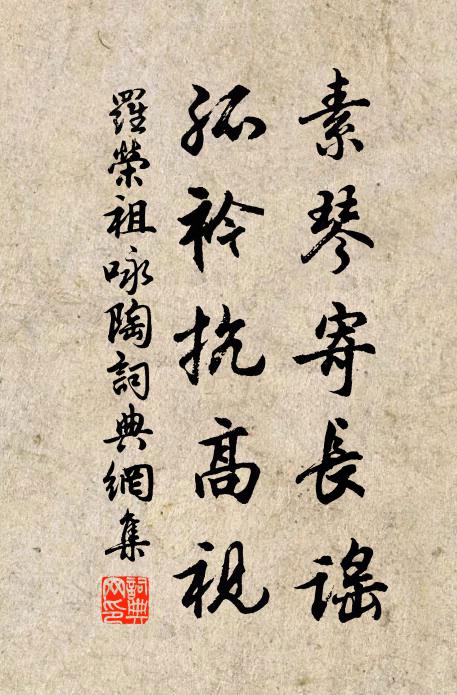 素琴寄長謠
孤衿抗高視
羅榮祖咏陶詞典網集
詞典網印